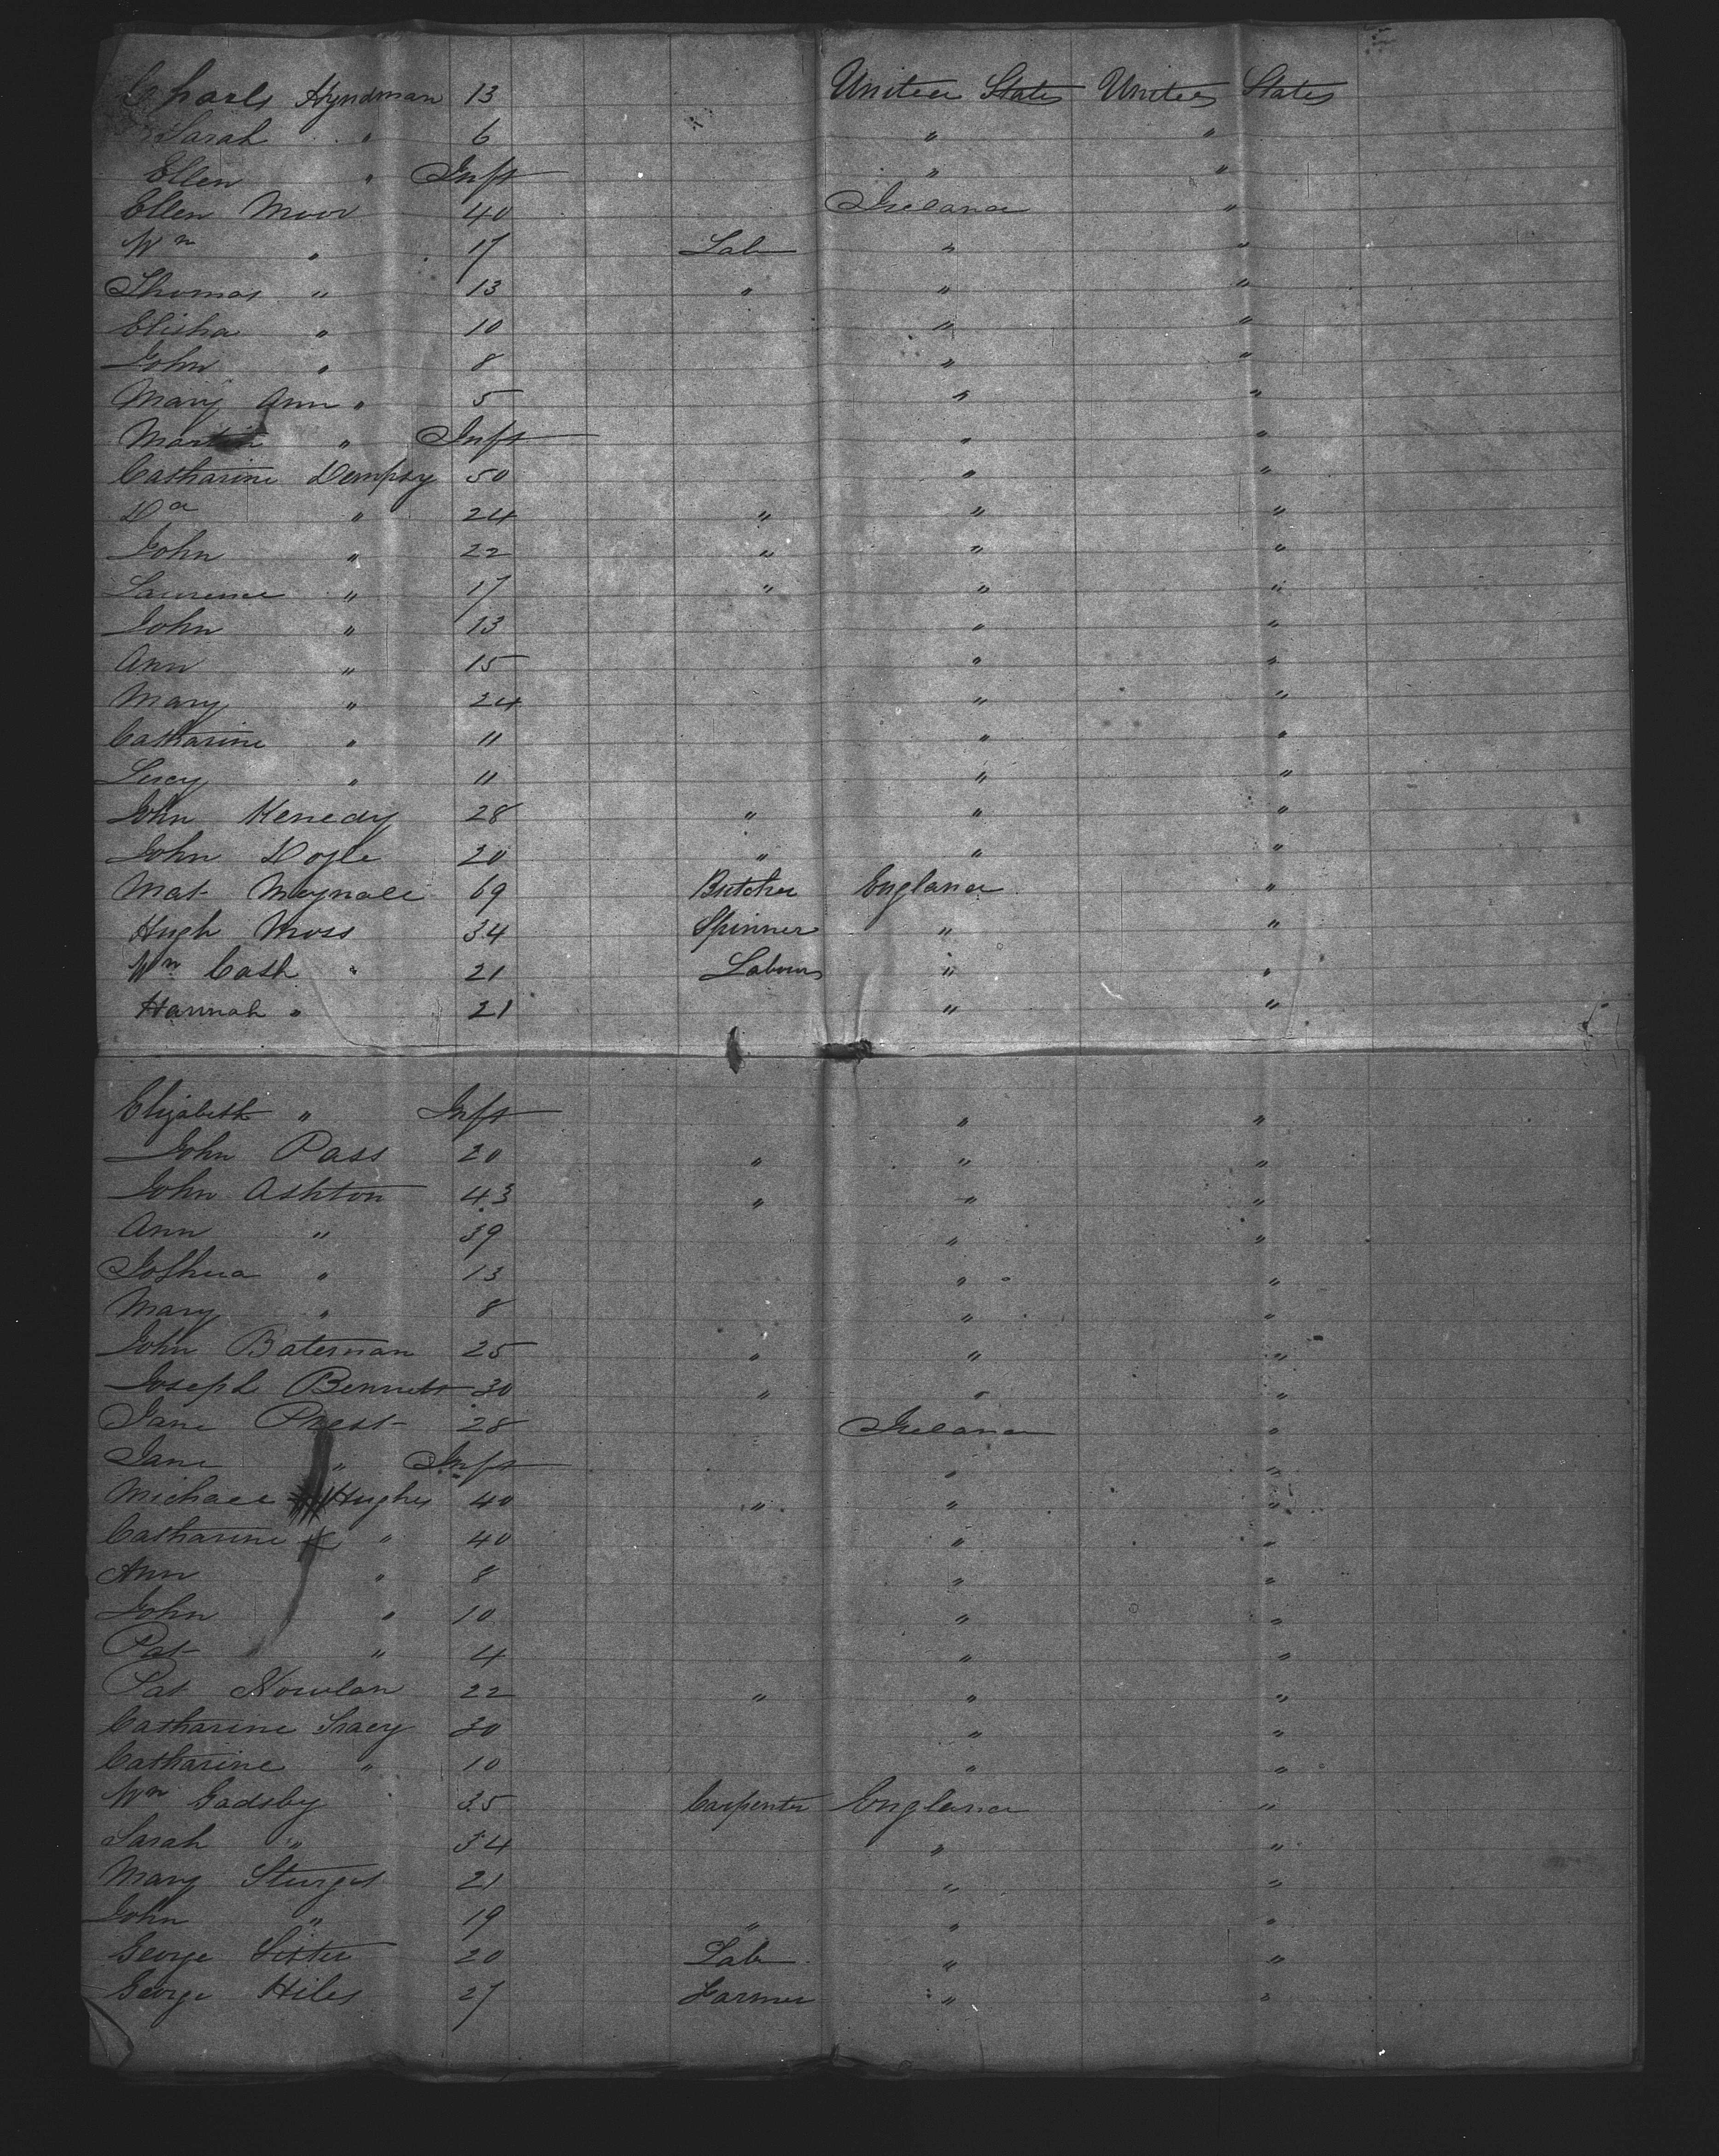 Charls Hyndman 13 United States United States
Sarah " 6 " "
Ellen " Inft " "
Ellen Moor 40 Ireland "
Wm " 17 Lab " "
Thomas " 13 " " "
Elisha " 10 " "
John " 8 " "
Mary Ann " 5 " "
Martin " Inft " "
Catharine Dempsy 50 " "
Da " 24 " " "
John " 22 " " "
Lawrence " 17 " " "
John " 13 " "
Ann " 15 " "
Mary " 24 " "
Catharine " 11 " "
Lucy " 11 " "
John Kenedy 28 " " "
John Doyle 20 " " "
Mat 69 Butcher England "
Hugh Moss 34 Spinner " "
Wm Cash " 21 Labour " "
Hannah " 21 " "
Elizabeth " Inft " "
John Pass 20 " " "
John Ashton 43 " " "
Ann " 39 " "
Joshua " 13 " "
Mary " 8 " "
John Bateman 25 " " "
Joseph Bennett 30 " " "
Jane Prest 28 Ireland "
Jane " Inft " "
Michael Hughes 40 " " "
Catharine " 40 " "
Ann " 8 " "
John " 10 " "
Pat " 4 " "
Pat Nowlan 22 " " "
Catharine Tracy 30 " "
Catharine " 10 " "
Wm Gadsby 35 Carpenter England "
Sarah " 34 " "
Mary Sturges 21 " "
John " 19 " " "
George 20 Lab " "
George Hiles 27 Farmer " "